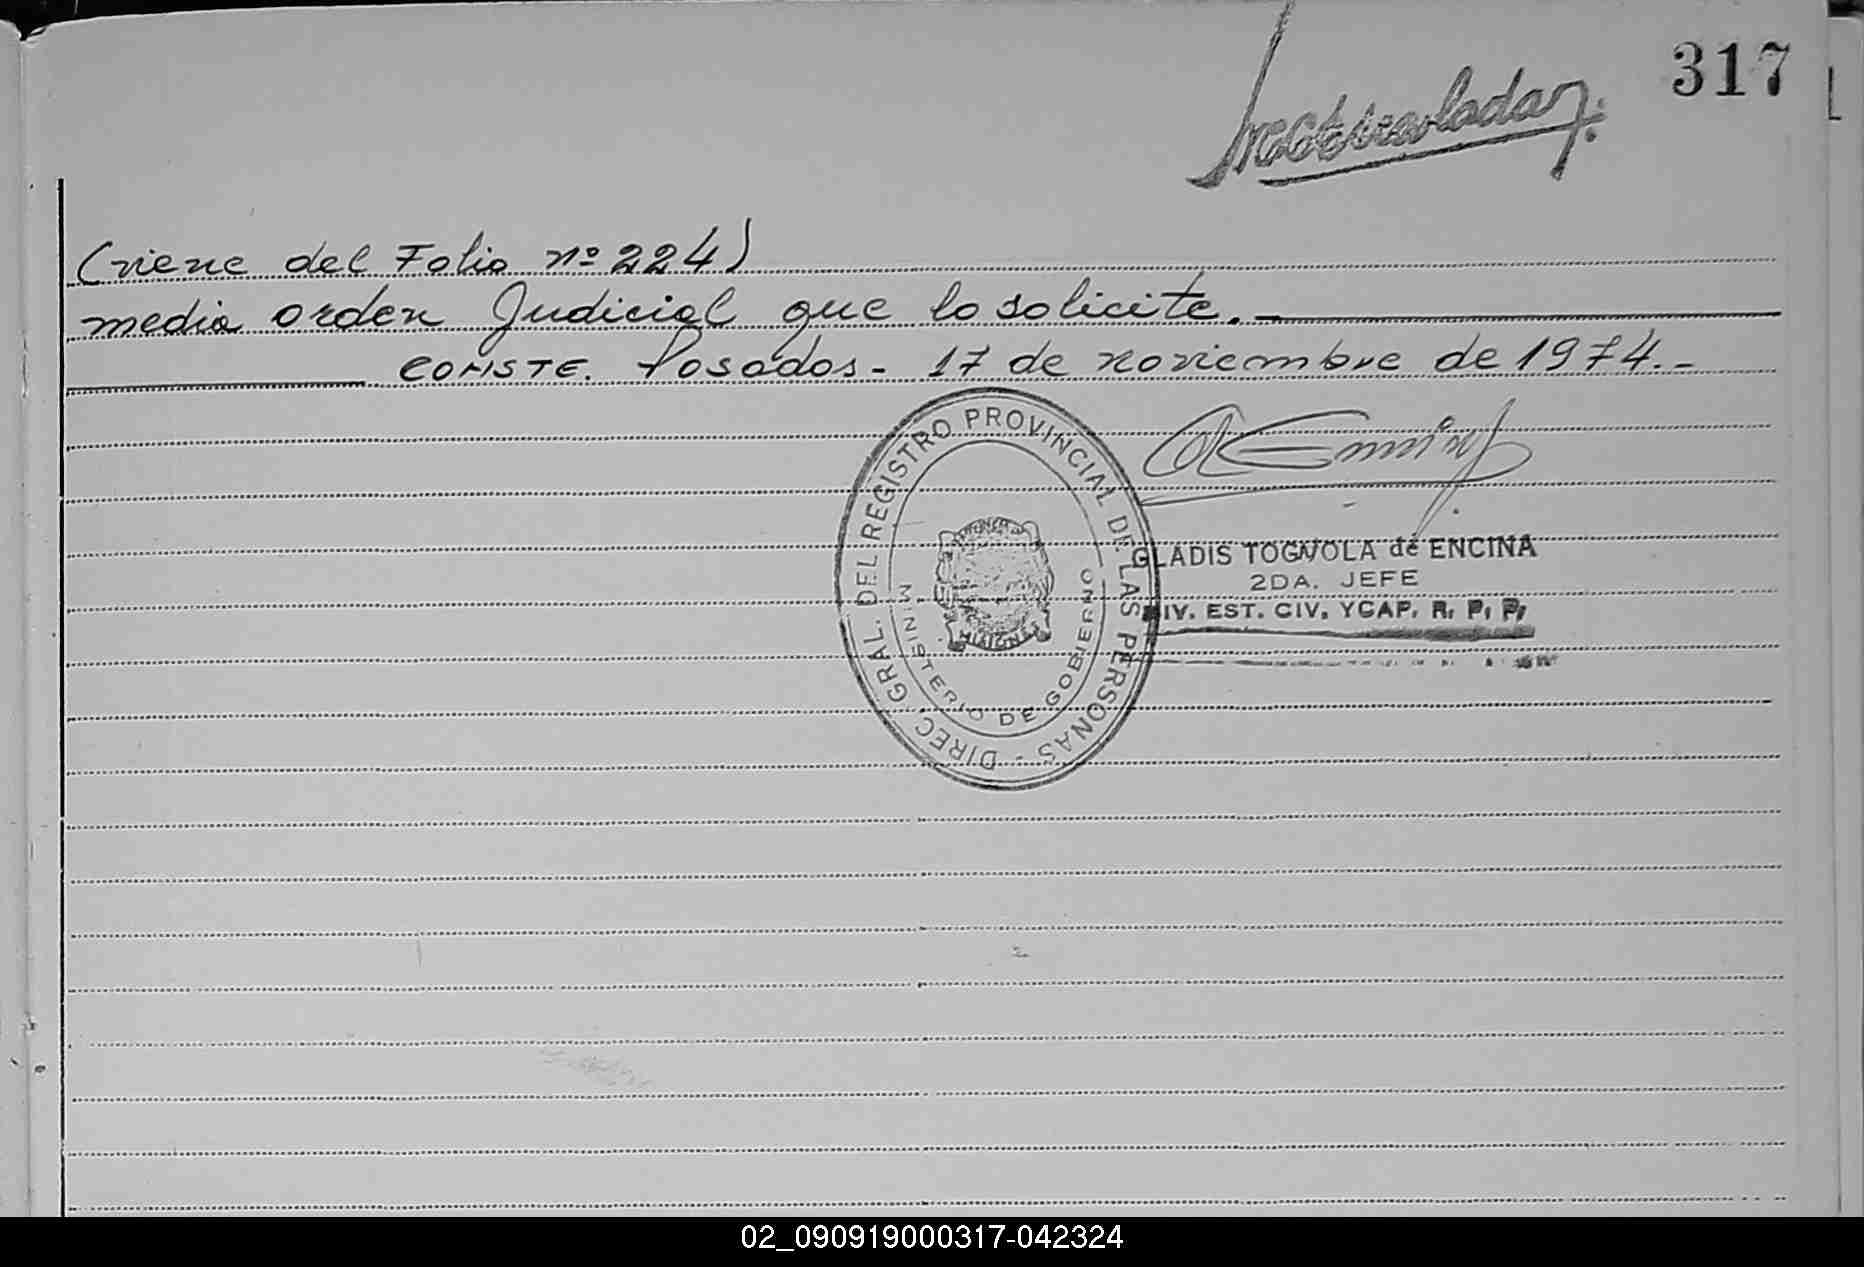 317
(viene del Folio nº 224)
media orden Judicial que lo solicite.-
CONSTE. Posadas- 17 de noviembre de 1974.-
DIREC. GRAL. DEL REGISTRO PROVINCIAL DE LAS PERSONAS -
MINISTERIO DE GOBIERNO
GLADIS TOGNOLA de ENCINA
2DA. JEFE
DIV. EST. CIV. YCAP. R. P. P.
02_090919000317-042324